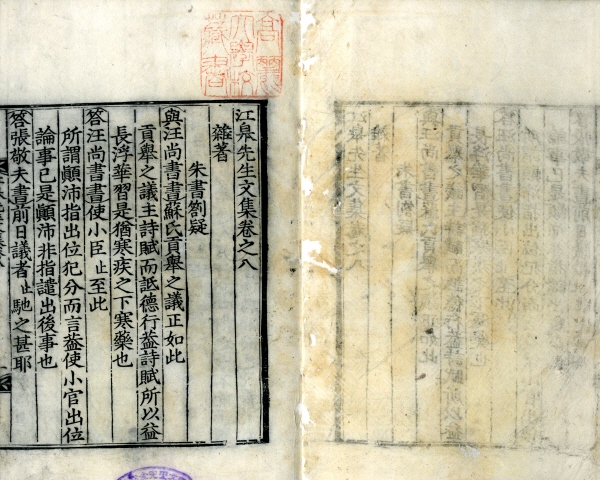 江皐先生文集卷之八
雜著
朱書劄疑
與汪尚書書蘇氏貢舉之議正如此
貢舉之議主詩賦而詆德行蓋詩賦所以益
長浮華習是猶寒疾之下寒藥也
答汪尚書書使小臣止至此
所謂顚沛指出位犯分而言蓋使小官出位
論事已是顚沛非指譴出後事也
答張敬夫書前日議者止馳之甚耶